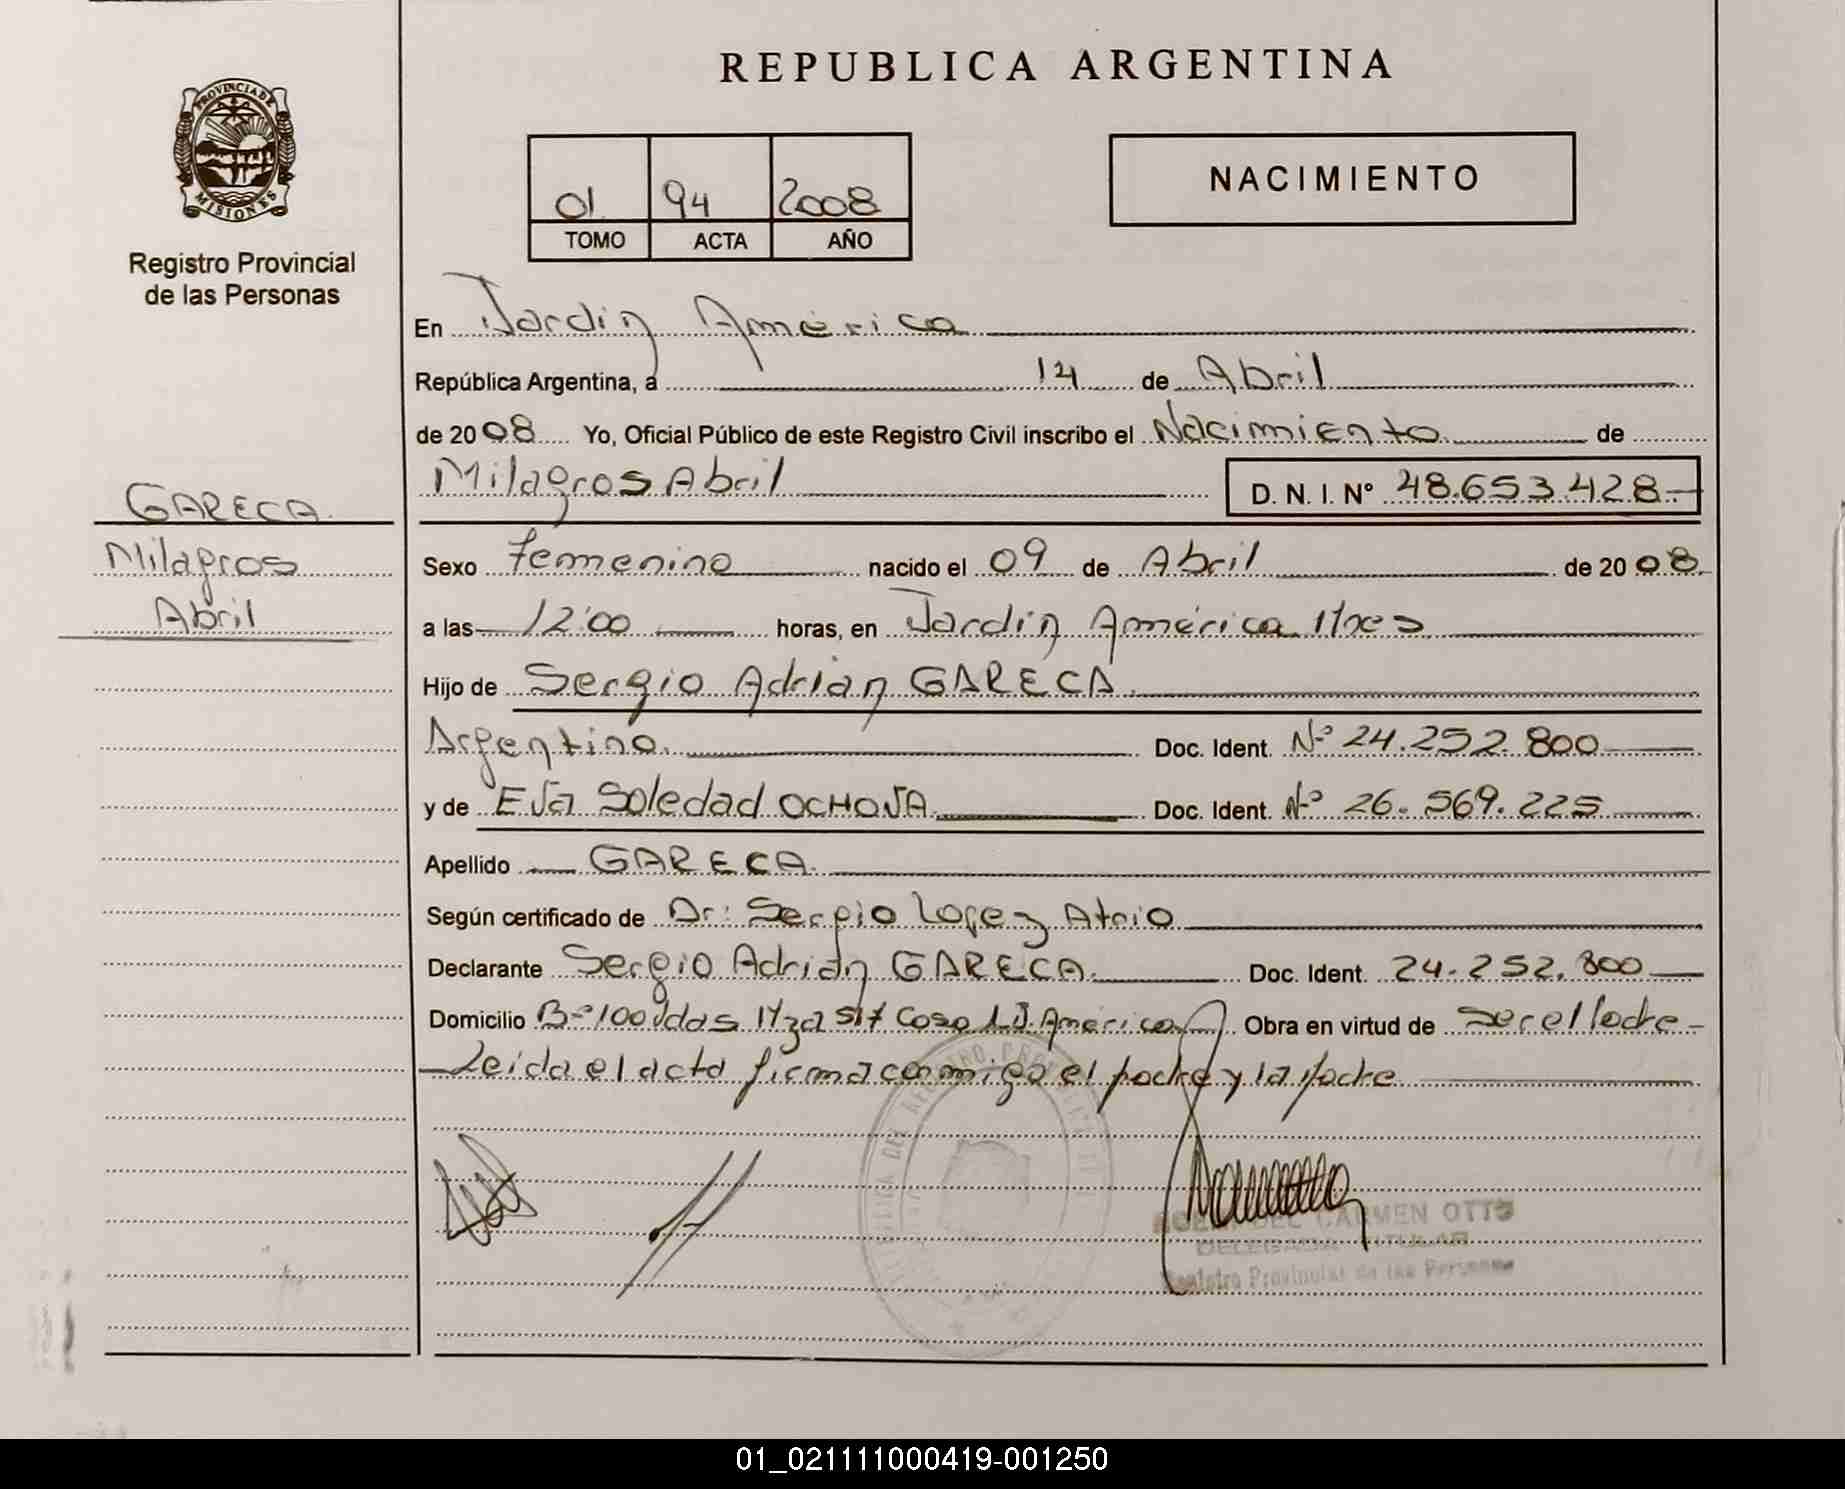 REPUBLICA ARGENTINA
PROVINCIA DE MISIONES
Registro Provincial
de las Personas
01 94 2008
TOMO ACTA AÑO
NACIMIENTO
En Jardin América
República Argentina, a 14 de Abril
de 2008 Yo, Oficial Público de este Registro Civil inscribo el Nacimiento de
Milagros Abril D. N. I. Nº 48.653.428
GARECA
Milagros
Abril
Sexo Femenino nacido el 09 de Abril de 2008
a las 12:00 horas, en Jardin América Mnes
Hijo de Sergio Adrian GARECA
Argentino Doc. Ident. Nº 24.252.800
y de Eva Soledad OCHOVA Doc. Ident. Nº 26.569.225
Apellido GARECA
Según certificado de Dr: Sergio Lopez Atrio
Declarante Sergio Adrian GARECA Doc. Ident. 24.252.800
Domicilio Bº 100 Vdas Mza S/f Casa 1 J. América Obra en virtud de ser el Padre
Leida el acta firma conmigo el padre y la Madre
DEL CARMEN OTTO
DELEGADA TITULAR
Registro Provincial de las Personas
01_021111000419-001250